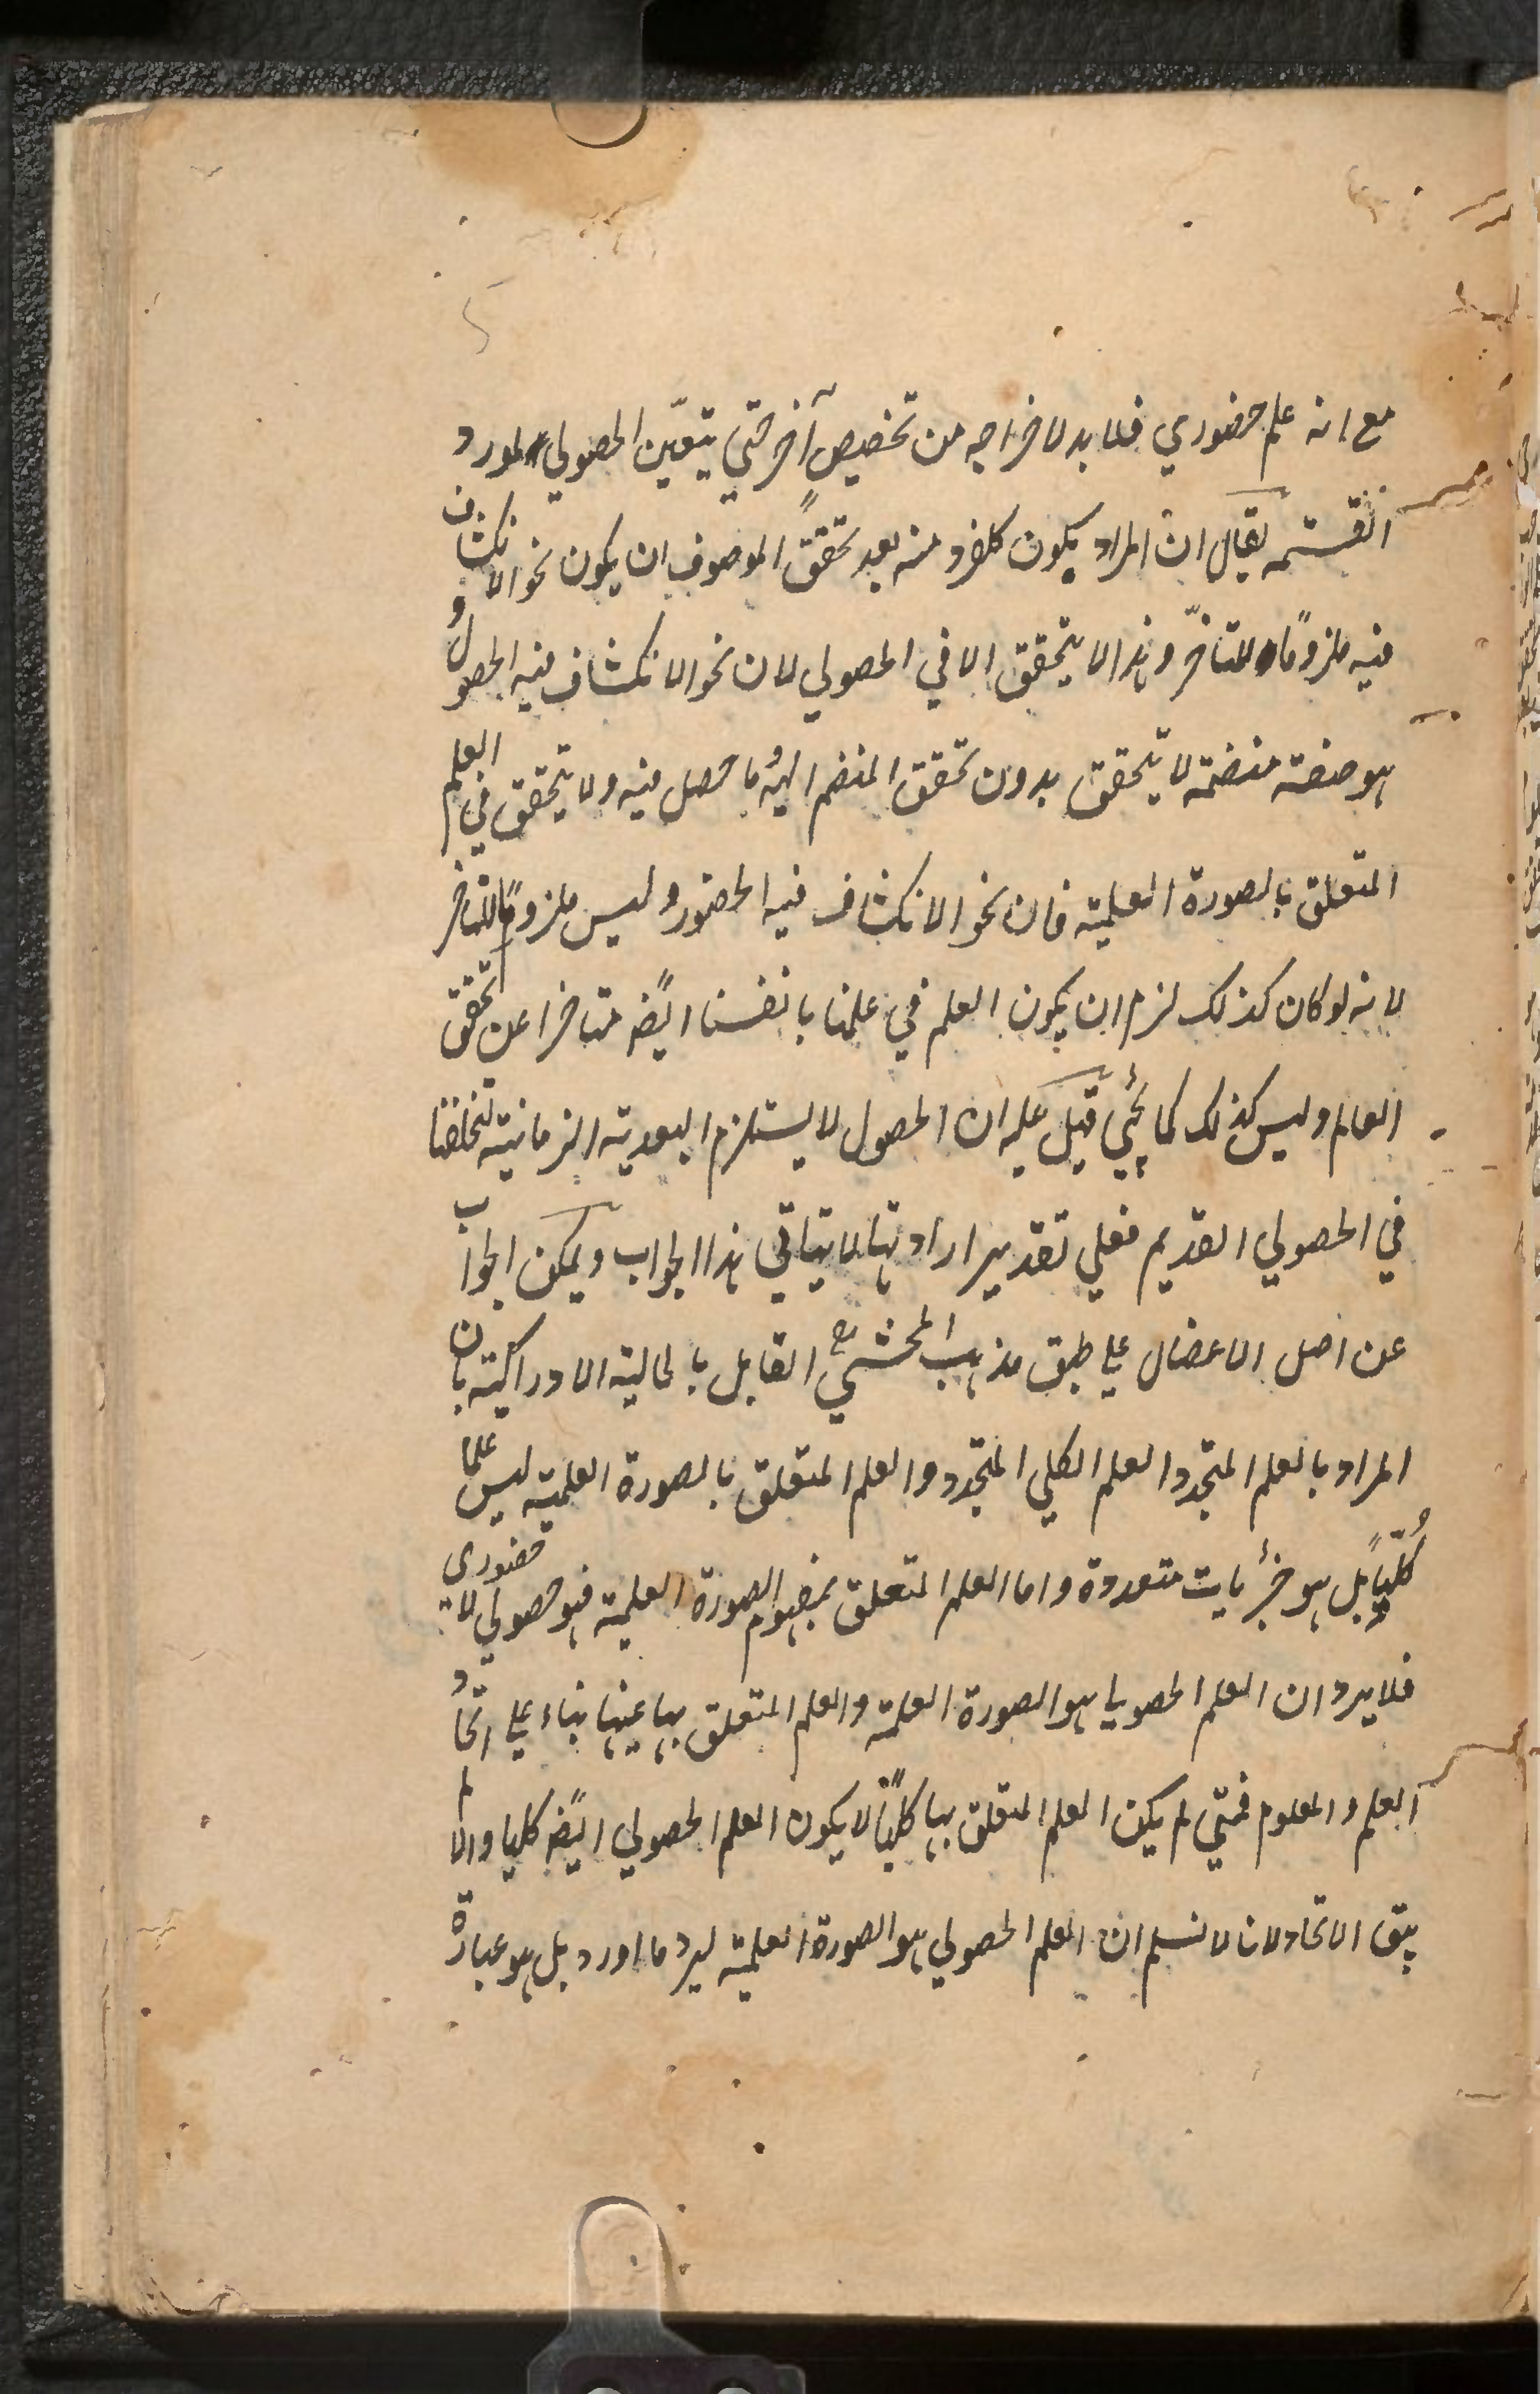 مع انه علم حضوري فلا بد لاخراجه من تخصيص آخر حتي يتعيّن الحصولي لمورد
القسمة يقال ان المراد بكون كل فرد منه بعد تحقق الموصوف ان يكون نحو الانكشاف
فيه ملزومًا للتاخّر وهذا لا يتحقق الا في الحصولي لان نحو الانكشاف فيه الحصول و
هو صفة منضمة لا يتحقق بدون تحقق المنضم اليه ما حصل فيه ولا يتحقق في العلم
المتعلق بالصورة العلمية فان نحو الانكشاف فيه الحضور وليس ملزومًا للتاخر
لانه لو كان كذلك لزم ان يكون العلم في علمنا بانفسنا ايضًا متاخرا عن تحقق
العالم وليس كذلك كما يجئ قيل عليه ان الحصول لا يستلزم البعدية الزمانية لتخلفها
في الحصولي القديم فعلي تقدير ارادتها لا يتاتي هذا الجواب ويمكن الجواب
عن اصل الاعضال علي طبق مذهب المحشي القايل بالحالية الادراكية بان
المراد بالعلم المتجدد العلم الكلي المتجدد والعلم المتعلق بالصورة العلمية ليس علما
كُلّيًا بل هو جزئيات متعددة واما العلم المتعلق بمفهوم الصورة العلمية فهو حصولي لا حضوري
فلا يرد ان العلم الحصولي هو الصورة العلمية والعلم المتعلق بها عينها بناء علي اتحاد
العلم والمعلوم فمتي لم يكن العلم المتعلق بها كليًا لا يكون العلم الحصولي ايضًا كليا والا لم
يبق الاتحاد لانا لا نسلم ان العلم الحصولي هو الصورة العلمية ليرد ما اورد بل هو عبارة